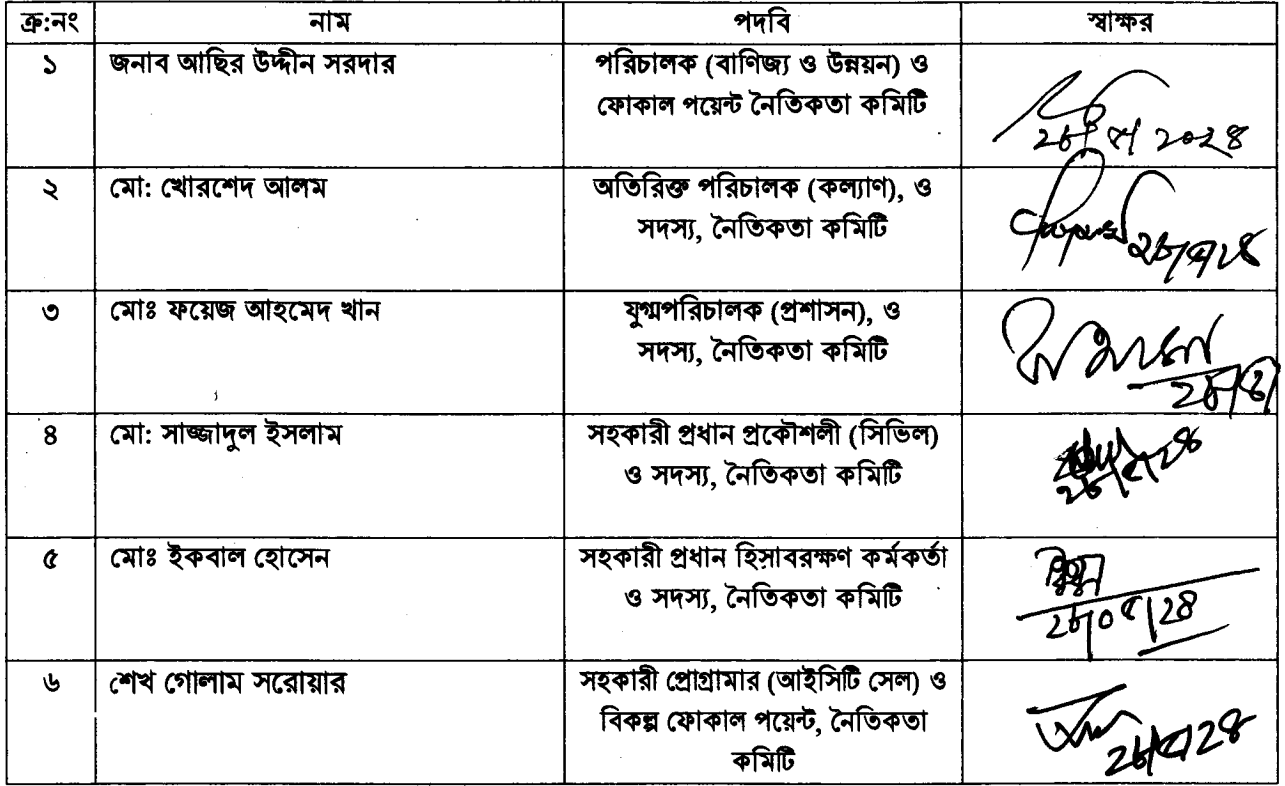 ক্র:নং নাম পদবি স্বাক্ষর
১ জনাব আছির উদ্দীন সরদার পরিচালক (বাণিজ্য ও উন্নয়ন) ও
ফোকাল পয়েন্ট নৈতিকতা কমিটি
২ মো: খোরশেদ আলম অতিরিক্ত পরিচালক (কল্যাণ), ও
সদস্য, নৈতিকতা কমিটি
৩ মোঃ ফয়েজ আহমেদ খান যুগ্মপরিচালক (প্রশাসন), ও
সদস্য, নৈতিকতা কমিটি
৪ মো: সাজ্জাদুল ইসলাম সহকারী প্রধান প্রকৌশলী (সিভিল)
ও সদস্য, নৈতিকতা কমিটি
৫ মোঃ ইকবাল হোসেন সহকারী প্রধান হিসাবরক্ষণ কর্মকর্তা
ও সদস্য, নৈতিকতা কমিটি
৬ শেখ গোলাম সরোয়ার সহকারী প্রোগ্রামার (আইসিটি সেল) ও
বিকল্প ফোকাল পয়েন্ট, নৈতিকতা
কমিটি